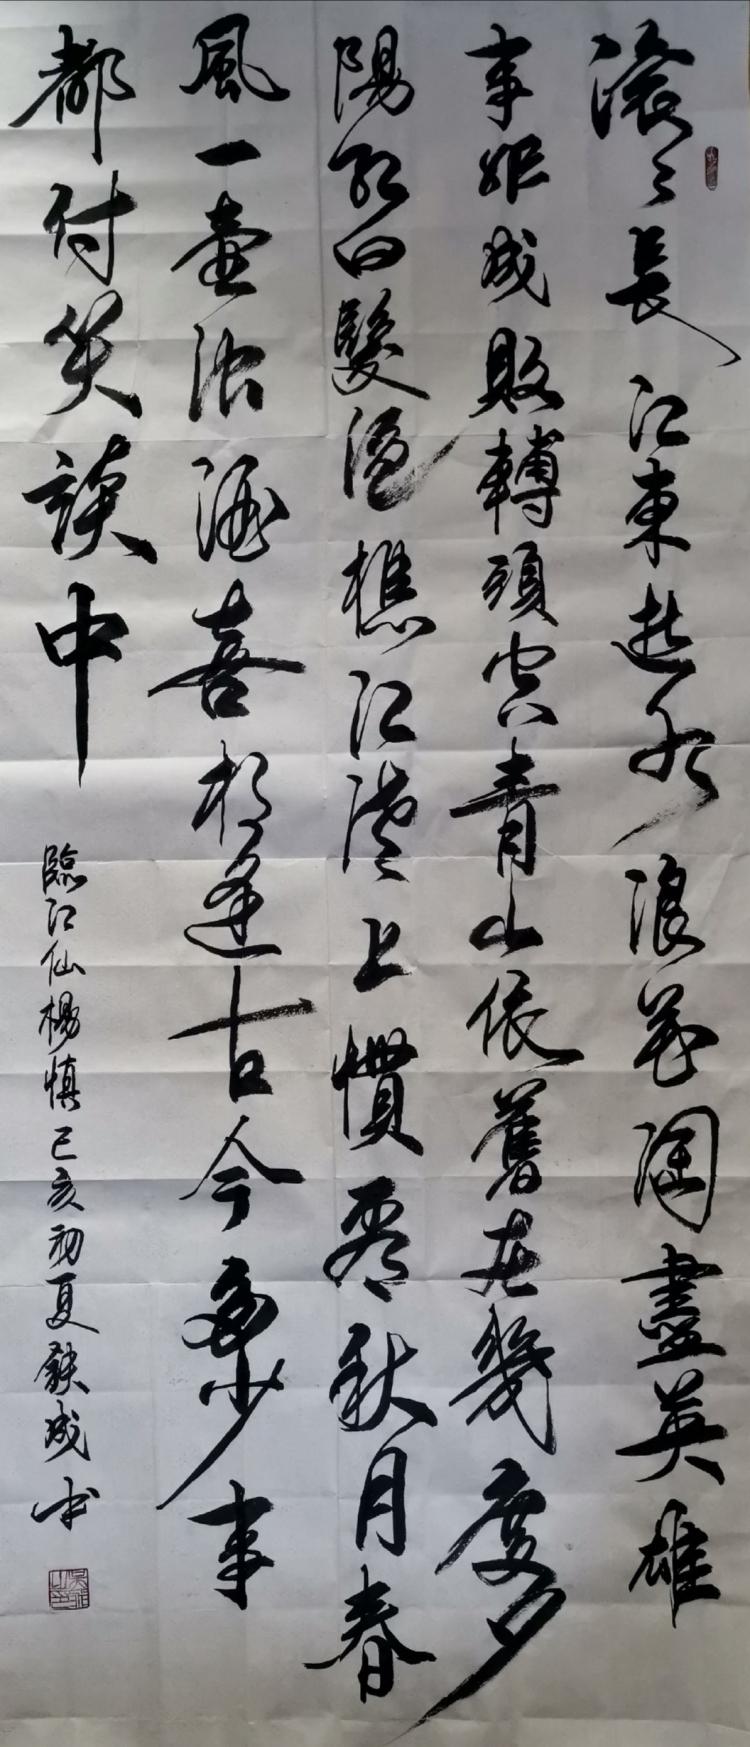 滚々長江東逝水浪花淘盡英雄
事非成敗轉頭空青山依舊在幾度夕
陽紅白髮漁樵江渚上慣看秋月春
風一壺浊酒喜相逢古今多少事
都付笑談中
臨江仙楊慎己亥初夏鉄成书